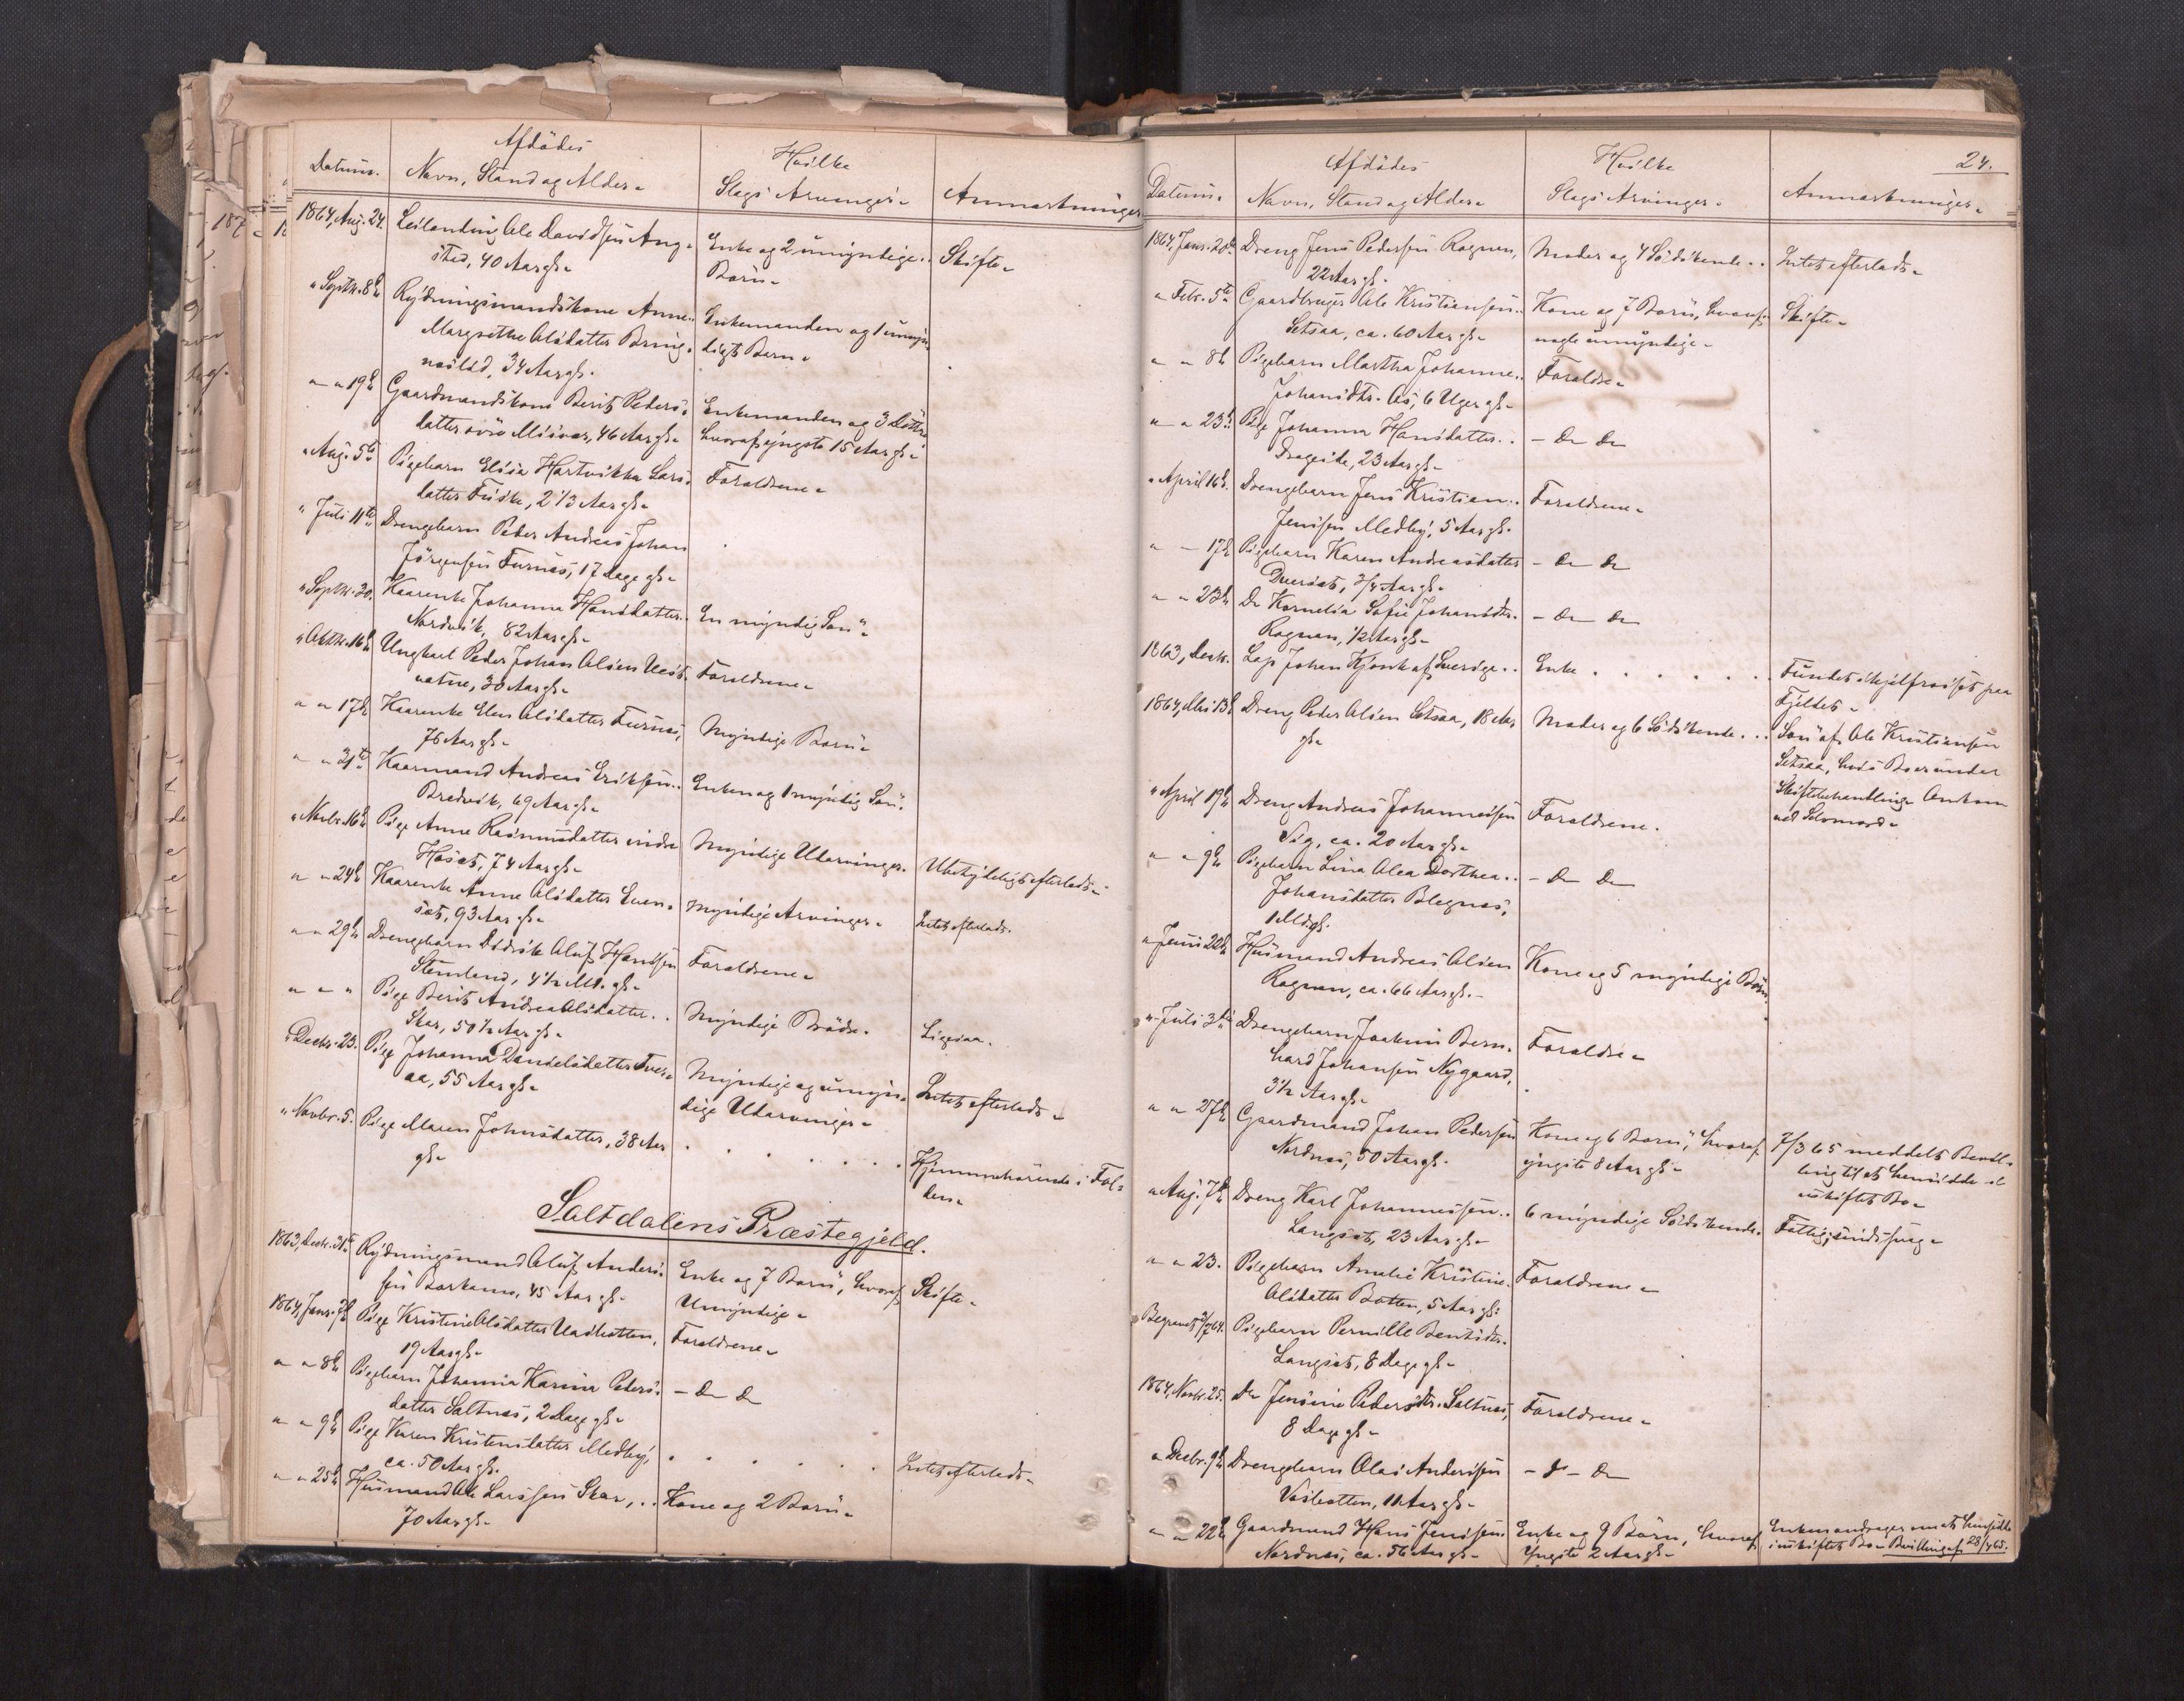 Afdødes
Hvilke
Datum.
Navn, Stand og Alder.
Slags Arvinger.
Anmærkninger
1864, Aug. 24.
Leilænding Ole Davidsen Ang-
Enke og 2 umyndige
Skifte
sted, 40 Aar gl.
Børn
" Septbr. 8de
Rydningsmandskone Anne
Enkemanden og 1 umyn-
Margrethe Olsdatter Bring-
digt Barn
neslid, 34 Aar gl.
" " 19de
Gaardmandskone Berit Peders-
Enkemanden og 3 Døttre
datter øvre Misvær, 46 Aar gl.
hvoraf yngste 15 Aar gl.
" Aug. 5te
Pigebarn Elisa Hartvikka Lars-
Forældrene
datter Fuske, 2 1/3 Aar gl.
" Juli 11te
Drengebarn Peder Andreas Johan
Jørgensen Furnes, 17 Dage gl.
" Septbr. 30.
Kaarenke Johanna Hansdatter
En myndig Søn
Nordvik, 82 Aar gl.
" Oktbr. 16de
Ungkarl Peder Johan Olsen
Forældrene
vatne, 30 Aar gl.
" " 17de
Kaarenke Elen Olsdatter Furnes,
Myndige Børn
76 Aar gl.
" " 31te
Kaarmand Andreas Eriksen
Enken og 1 myndig Søn.
Bredvik, 69 Aar gl.
" Novbr. 16de
Pige Anne Rasmusdatter indre
Myndige Udarvinger.
Ubetydeligt efterladt
Høset, 74 Aar gl.
" " 24de
Kaarenke Anne Olsdatter Even-
Myndige Arvinger
Intet efterladt.
set, 93 Aar gl.
" " 29de
Drengebarn Didrik Oluf Hansen
Forældrene
Stemland, 4 1/2 Md. gl.
" " "
Pige Berit Andrea Olsdatter
Myndige Brødre.
Ligesaa.
Skar, 50 1/2 Aar gl.
" Decbr. 23.
Pige Johanna Danielsdatter Tver-
Myndige og umyn-
Intet efterladt
aa, 55 Aar gl.
dige Udarvinger
" Novbr. 5.
Pige Maren Johnsdatter, 38 Aar
Hjemmehørende i Fol-
gl.
den
Saltdalens Præstegjeld.
1863, Decbr. 31te
Rydningsmand Oluf Anders-
Enke og 7 Børn, hvoraf
Skifte
sen Borkamo, 45 Aar gl.
Umyndige
1864, Janr. 7de
Pige Kristine Olsdatter Vasbotten,
Forældrene
19 Aar gl.
" " 8de
Pigebarn Johanna Karina Peders-
- Do Do
datter Saltnes, 2 Dage gl.
" " 9de
Pige Karen Kristensdatter Medby,
Intet efterladt
ca. 50 Aar gl.
" " 25de
Husmand Ole Larssen Skar,
Kone og 2 Børn
70 Aar gl.
24.
Afdødes
Hvilke
Datum.
Navn, Stand og Alder
Slags Arvinger.
Anmærkninger
1864, Janr. 20de
Dreng Jens Pedersen Rognan,
Moder og 4 Sødskende
Intet efterladt
22 Aar gl.
" Febr. 5te
Gaardbruger Ole Kristiansen
Kone og 7 Børn, hvoraf
Skifte
Setsaa, ca. 60 Aar gl.
nogle umyndige
" " 8de
Pigebarn Martha Johanne
Forældre
Johansdtr. Os, 6 Uger gl.
" " 23de
Pige Johanna Hansdatter
- Do Do
Drageide, 23 Aar gl.
" April 16de
Drengebarn Jens Kristian
Forældrene
Jensen Medby, 5 Aar gl.
" " 17de
Pigebarn Karen Andreasdatter
- Do Do
Dverset, 3/4 Aar gl.
" " 23de
Do Kornelia Sofie Johansdtr.
- Do Do
Rognan, 1/2 Aar gl.
1863, Decbr.
Lap Johan Kjonk af Sverige
Enke
Fundet ihjelfrosset paa
Fjeldet
1864, Mai 13de
Dreng Peder Olsen Setsaa, 18 Aar
Moder og 6 Sødskende
Søn af Ole Kristiansen
gl.
Setsaa, hvis Bo er under
Skiftebehandling. Omkom
ved Selvmord
" April 19de
Dreng Andreas Johannessen
Forældrene.
Vig, ca. 20 Aar gl.
" " 9de
Pigebarn Lina Olea Dorthea
- Do Do
Johansdatter Blegnes,
1 Md. gl.
" Juni 22de
Husmand Andreas Olsen
Kone og 5 myndige Børn
Rognan, ca. 66 Aar gl.
" Juli 3die
Drengebarn Joakim Bern-
Forældre
hard Johansen Nygaard,
3 1/2 Aar gl.
" " 27de
Gaardmand Johan Pedersen
Kone og 6 Børn, hvoraf
7/3 65 meddelt Bevil-
Nordnes, 50 Aar gl.
yngste 8 Aar gl.
ling til at hensidde i
uskiftet Bo
" Aug. 7de
Dreng Karl Johannessen
6 myndige Sødskende.
Fattig, sindssvag
Langset, 23 Aar gl.
" " 23.
Pigebarn Amalie Kristine
Forældrene
Olsdatter Botten, 5 Aar gl.
Begravet 64.
Pigebarn Pernille Bentsdtr.
Langset, 8 Dage gl.
1864, Novbr. 25.
Do Jensine Pedersdtr. Saltnes,
Forældrene
8 Dage gl.
" Decbr. 9de
Drengebarn Olai Andersen
- Do - Do
Vasbotten, 11 Aar gl.
" " 22de
Gaardmand Hans Jensen
Enke og 9 Børn, hvoraf
Enken andrager om at hensidde
Nordnes, ca. 56 Aar gl.
Yngste 2 Aar gl.
i uskiftet Bo. Bevilling af 28/4 65.